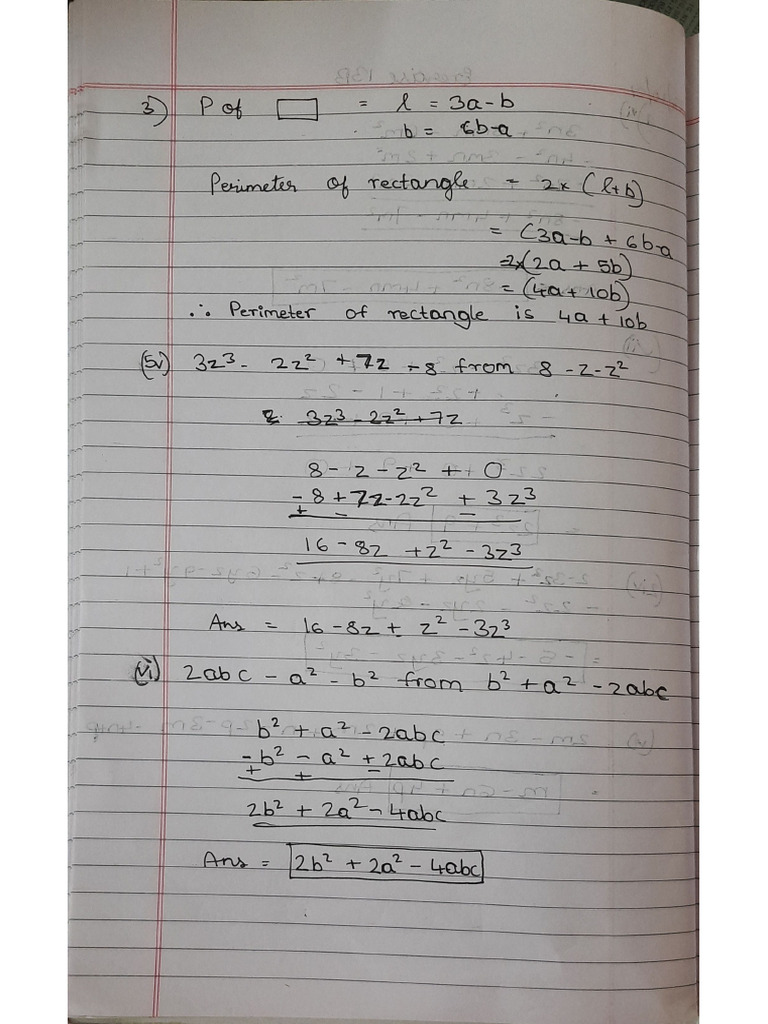 3) P of = l = 3a-b
b = 6b-a
Perimeter of rectangle = 2x (l+b)
= (3a-b + 6b-a
=2x(2a + 5b)
= (4a+10b)
∴ Perimeter of rectangle is 4a + 10b
3z³ - 2z² + 7z - 8 from 8 - z - z²
3z³ - 2z² + 7z
8 - z - z² + 0
- 8 + 7z - 2z² + 3z³
+ - -
16 - 8z + z² - 3z³
Ans = 16 - 8z + z² - 3z³
(vi) 2abc - a² - b² from b² + a² - 2abc
b² + a² - 2abc
- b² - a² + 2abc
+ + -
2b² + 2a² - 4abc
Ans = 2b² + 2a² - 4abc